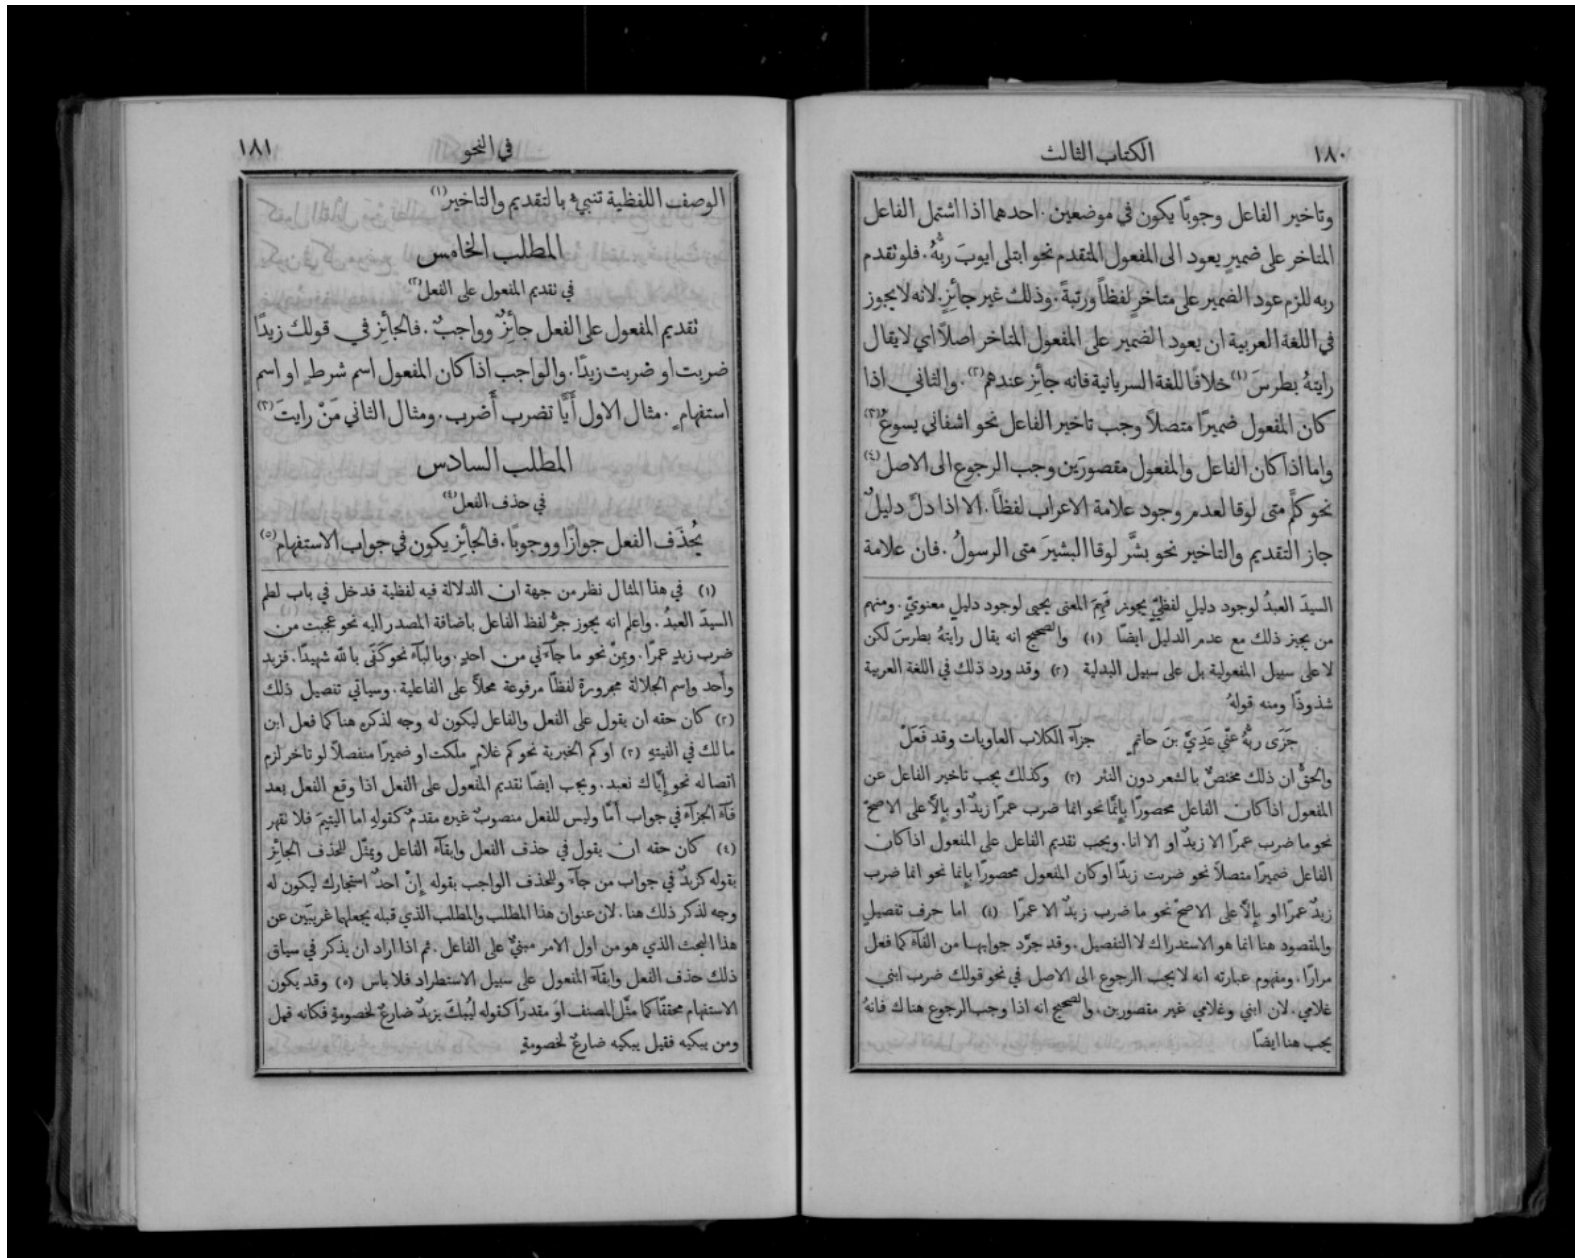 ١٨٠
الكتاب الثالث
وتاخير الفاعل وجوبًا يكون في موضعين. احدهما اذا اشتمل الفاعل
المتاخر على ضميرٍ يعود الى المفعول المتقدم نحو ابتلى ايوبَ ربُّهُ. فلو تقدم
ربه للزم عود الضمير على متاخرٍ لفظاً ورتبةً. وذلك غير جائزٍ. لانه لا يجوز
في اللغة العربية ان يعود الضمير على المفعول المتاخر اصلاً اي لا يقال
رايتهُ بطرسَ (١) خلافًا للغة السريانية فانه جائز عندهم (٢). والثاني اذا
كان المفعول ضميرًا متصلاً وجب تاخير الفاعل نحو اشفاني يسوعُ (٣)
واما اذا كان الفاعل والمفعول مقصورَين وجب الرجوع الى الاصل (٤)
نحو كلَّم متى لوقا لعدم وجود علامة الاعراب لفظاً. الا اذا دلَّ دليلٌ
جاز التقديم والتاخير نحو بشَّر لوقا البشيرَ متى الرسولُ. فان علامة
السيدَ العبدُ لوجود دليلٍ لفظيٍّ يجوز فَهِمَ المعنى يحيى لوجود دليلٍ معنويٍّ. ومنهم
من يجيز ذلك مع عدم الدليل ايضًا (١) والصحيح انه يقال رايتهُ بطرسَ لكن
لا على سبيل المفعولية بل على سبيل البدلية (٢) وقد ورد ذلك في اللغة العربية
شذوذًا ومنه قولهُ
جَزَى ربُّهُ عنّي عَدِيَّ بنَ حاتمٍ جزآءَ الكلاب العاويات وقد فَعَلْ
والحقُّ ان ذلك مختصٌّ بالشعر دون النثر (٣) وكذلك يجب تاخير الفاعل عن
المفعول اذا كان الفاعل محصورًا بإنَّما نحو انما ضرب عمرًا زيدٌ او بإلاَّ على الاصحّ
نحو ما ضرب عمرًا الا زيدٌ او الا انا. ويجب تقديم الفاعل على المفعول اذا كان
الفاعل ضميرًا متصلاً نحو ضربت زيدًا او كان المفعول محصورًا بإنما نحو انما ضرب
زيدٌ عمرًا او بإلاَّ على الاصحّ نحو ما ضرب زيدٌ الا عمرًا (٤) اما حرف تفصيلٍ
والمقصود هنا انما هو الاستدراك لا التفصيل. وقد جرَّد جوابها من الفآء كما فعل
مرارًا. ومفهوم عبارته انه لا يجب الرجوع الى الاصل في نحو قولك ضرب ابني
غلامي. لان ابني وغلامي غير مقصورين. والصحيح انه اذا وجب الرجوع هناك فانهُ
يجب هنا ايضًا
في النحو
١٨١
الوصف اللفظية تنبيءُ بالتقديم والتاخير (١)
المطلب الخامس
في تقديم المفعول على الفعل (٢)
تقديم المفعول على الفعل جائزٌ وواجبٌ. فالجائز في قولك زيدًا
ضربت او ضربت زيدًا. والواجب اذا كان المفعول اسم شرطٍ او اسم
استفهامٍ. مثال الاول أَيًّا تضرب أَضرب. ومثال الثاني مَنْ رايتَ (٣)
المطلب السادس
في حذف الفعل (٤)
يُحذَف الفعل جوازًا ووجوبًا. فالجائز يكون في جواب الاستفهام (٥)
(١) في هذا المثال نظر من جهة ان الدلالة فيه لفظية فدخل في باب لطم
السيدَ العبدُ. واعلم انه يجوز جرُّ لفظ الفاعل باضافة المصدر اليه نحو عجبت من
ضرب زيدٍ عمرًا. وبمِنْ نحو ما جآءَني من احدٍ. وبالبآءَ نحو كَفَى بالله شهيدًا. فزيد
وأحد واسم الجلالة مجرورة لفظًا مرفوعة محلاًّ على الفاعلية. وسياتي تفصيل ذلك
(٢) كان حقه ان يقول على الفعل والفاعل ليكون له وجه لذكره هنا كما فعل ابن
مالك في الفيتهِ (٣) او كم الخبرية نحو كم غلامٍ ملكت او ضميرًا منفصلاً لو تاخر لزم
اتصاله نحو إيَّاك نعبد. ويجب ايضًا تقديم المفعول على الفعل اذا وقع الفعل بعد
فآءَ الجزآءَ في جواب أَمَّا وليس للفعل منصوبٌ غيره مقدمٌ كقولهِ اما اليتيمَ فلا تقهر
(٤) كان حقه ان يقول في حذف الفعل وابقآءَ الفاعل ويمثّل للحذف الجائز
بقوله كزيدٌ في جواب من جآءَ وللحذف الواجب بقوله إنْ احدٌ استجارك ليكون له
وجه لذكر ذلك هنا. لان عنوان هذا المطلب والمطلب الذي قبله يجعلهما غريبَين عن
هذا البحث الذي هو من اول الامر مبنيٌّ على الفاعل. ثم اذا اراد ان يذكر في سياق
ذلك حذف الفعل وابقآءَ المفعول على سبيل الاستطراد فلا باس (٥) وقد يكون
الاستفهام محققًا كما مثّل المصنف او مقدرًا كقوله ليُبكَ يزيدُ ضارعٌ لخصومةٍ فكانه قيل
ومن يبكيه فقيل يبكيه ضارعٌ لخصومةٍ